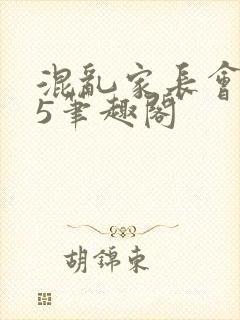 混亂家長會
5筆趣閣
胡錦東